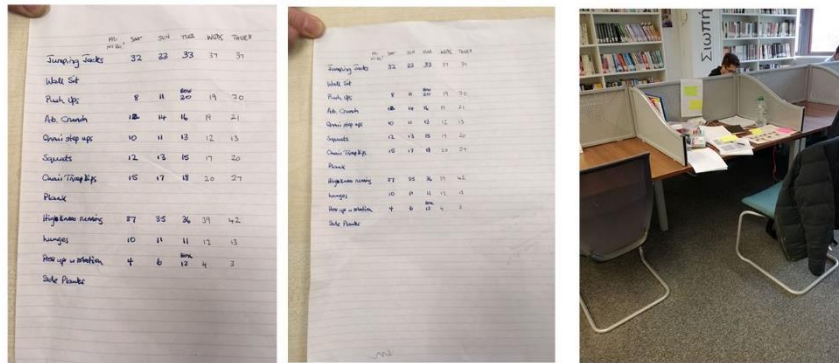 SAT SUN TUES WEDS THURS
Jumping Jacks 32 33 33 37 37
Wall Sit
Push Ups 8 11 20 19 20
Ab. Crunch 12 14 16 19 21
Chair step ups 10 11 13 12 13
Squats 12 13 15 17 20
Chair Tricep Dips 15 17 18 20 27
Plank
High Knee running 37 35 36 39 42
Lunges 10 11 11 12 13
Push up w rotation 4 6 12 4 3
Side Planks
SAT SUN TUES WEDS THURS
Jumping Jacks 32 33 33 37 37
Wall Sit
Push Ups 8 11 20 19 20
Ab. Crunch 12 14 16 19 21
Chair step ups 10 11 13 12 13
Squats 12 13 15 17 20
Chair Tricep Dips 15 17 18 20 27
Plank
High Knee running 37 35 36 39 42
Lunges 10 11 11 12 13
Push up w rotation 4 6 12 4 3
Side Planks
Σιωπή